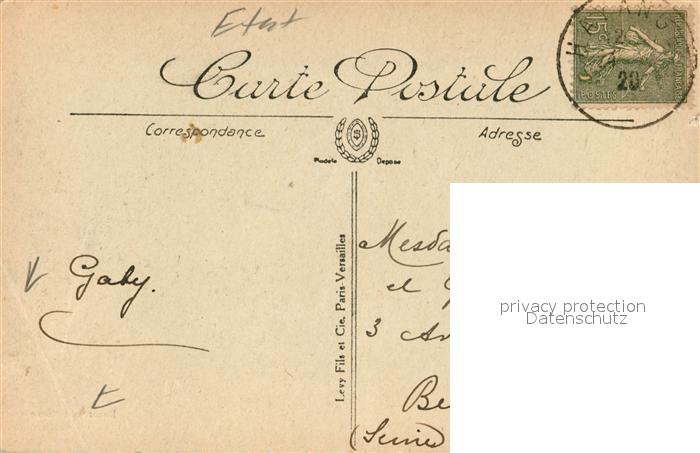 Carte Postale
Correspondance
Adresse
Modele Depose
15c
POSTES
20
Levy Fils et Cie, Paris-Versailles
Gaby.
Mesda
et
3 Av
Be
(Seine
privacy protection
Datenschutz